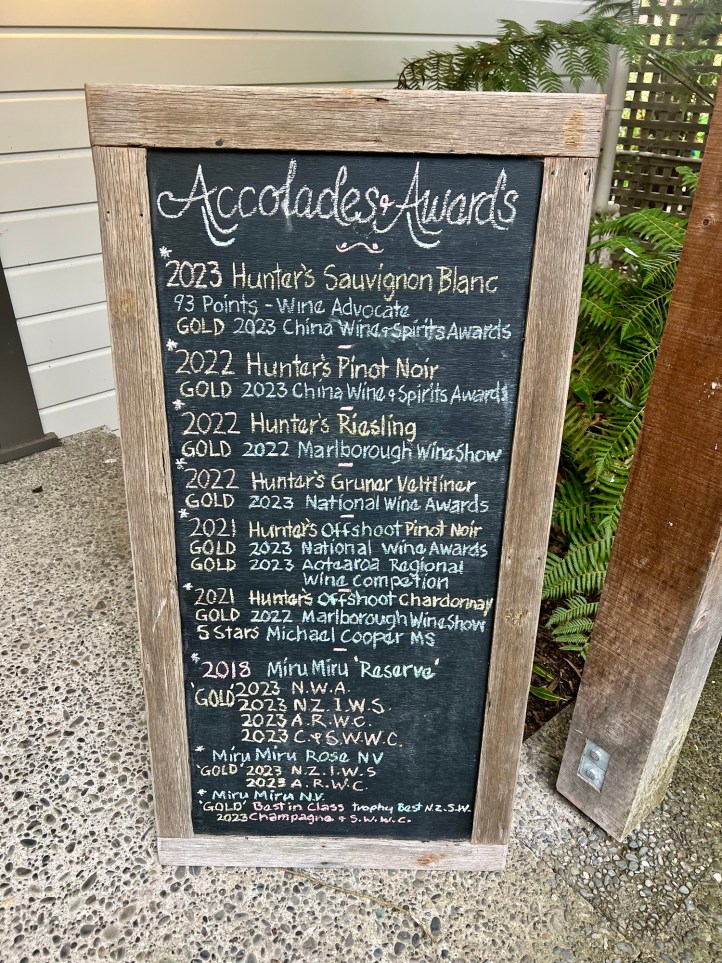 Accolades & Awards
* 2023 Hunter's Sauvignon Blanc
93 Points - Wine Advocate
GOLD 2023 China Wine & Spirits Awards
* 2022 Hunter's Pinot Noir
GOLD 2023 China Wine & Spirits Awards
* 2022 Hunter's Riesling
GOLD 2022 Marlborough Wine Show
* 2022 Hunter's Gruner Veltliner
GOLD 2023 National Wine Awards
* 2021 Hunter's Offshoot Pinot Noir
GOLD 2023 National Wine Awards
GOLD 2023 Aotearoa Regional
Wine Competion
* 2021 Hunter's Offshoot Chardonnay
GOLD 2022 Marlborough Wine Show
5 Stars Michael Cooper MS
* 2018 Miru Miru 'Reserve'
'GOLD' 2023 N.W.A.
2023 N.Z.I.W.S.
2023 A.R.W.C.
2023 C.&S.W.W.C.
* Miru Miru Rose NV
'GOLD' 2023 N.Z.I.W.S
2023 A.R.W.C.
* Miru Miru N.V.
'GOLD' Best in Class trophy Best N.Z.S.W.
2023 Champagne & S.W.W.C.